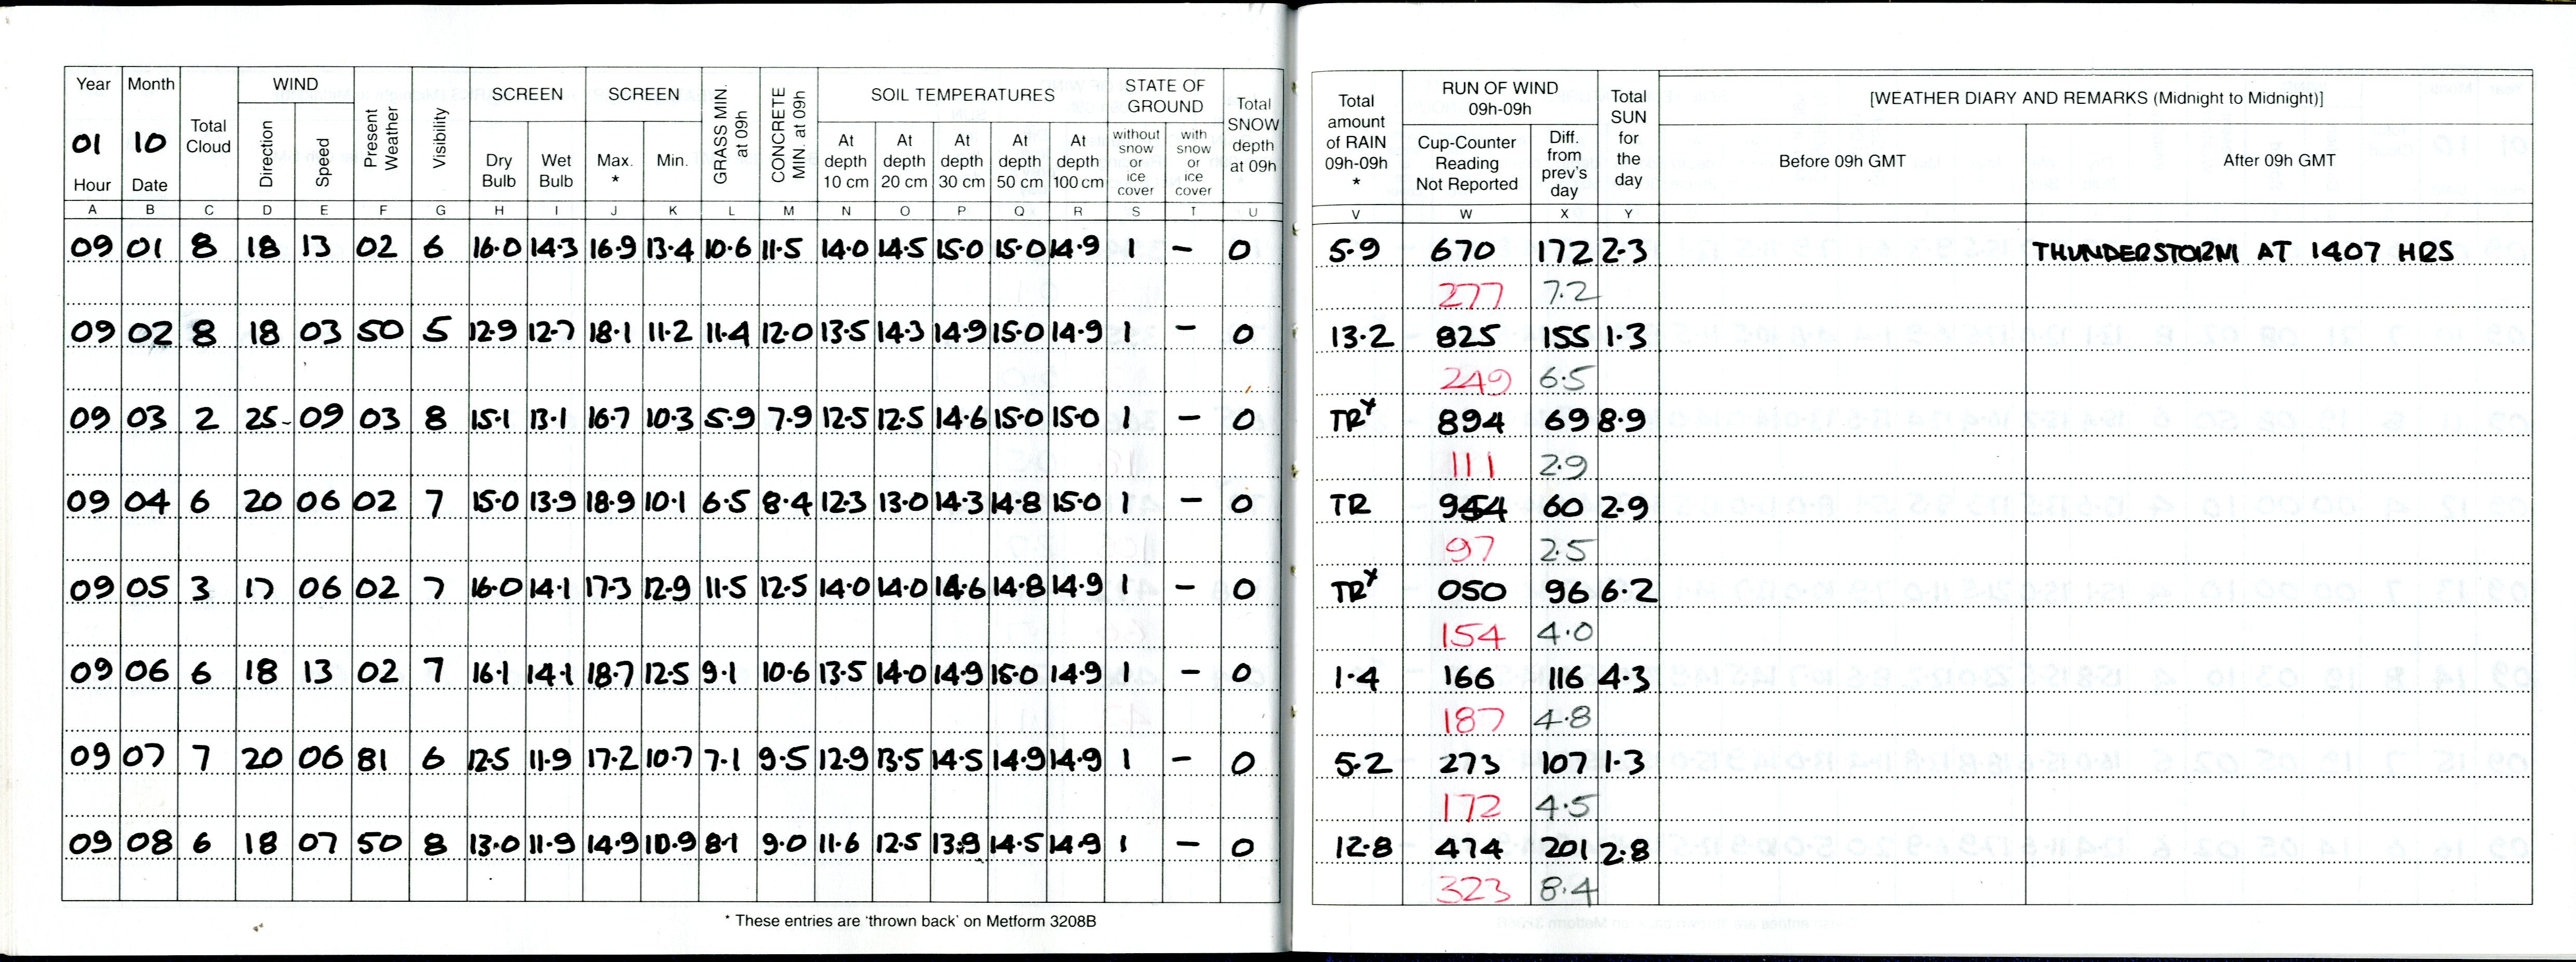 Year Month Total Cloud WIND Present Weather Visibility SCREEN SCREEN GRASS MIN. at 09h CONCRETE MIN. at 09h SOIL TEMPERATURES STATE OF GROUND Total SNOW depth at 09h Total amount of RAIN 09h-09h * RUN OF WIND 09h-09h Total SUN for the day [WEATHER DIARY AND REMARKS (Midnight to Midnight)]
01 10 Direction Speed Dry Bulb Wet Bulb Max. * Min. At depth 10 cm At depth 20 cm At depth 30 cm At depth 50 cm At depth 100 cm without snow or ice cover with snow or ice cover Cup-Counter Reading Not Reported Diff. from prev's day Before 09h GMT After 09h GMT
Hour Date
A B C D E F G H I J K L M N O P Q R S T U V W X Y
09 01 8 18 13 02 6 16.0 14.3 16.9 13.4 10.6 11.5 14.0 14.5 15.0 15.0 14.9 1 – 0 5.9 670 172 2.3 THUNDERSTORM AT 1407 HRS
277 7.2
09 02 8 18 03 50 5 12.9 12.7 18.1 11.2 11.4 12.0 13.5 14.3 14.9 15.0 14.9 1 – 0 13.2 825 155 1.3
249 6.5
09 03 2 25 09 03 8 15.1 13.1 16.7 10.3 5.9 7.9 12.5 12.5 14.6 15.0 15.0 1 – 0 TR* 894 69 8.9
111 2.9
09 04 6 20 06 02 7 15.0 13.9 18.9 10.1 6.5 8.4 12.3 13.0 14.3 14.8 15.0 1 – 0 TR 954 60 2.9
97 2.5
09 05 3 17 06 02 7 16.0 14.1 17.3 12.9 11.5 12.5 14.0 14.0 14.6 14.8 14.9 1 – 0 TR* 050 96 6.2
154 4.0
09 06 6 18 13 02 7 16.1 14.1 18.7 12.5 9.1 10.6 13.5 14.0 14.9 15.0 14.9 1 – 0 1.4 166 116 4.3
187 4.8
09 07 7 20 06 81 6 12.5 11.9 17.2 10.7 7.1 9.5 12.9 13.5 14.5 14.9 14.9 1 – 0 5.2 273 107 1.3
172 4.5
09 08 6 18 07 50 8 13.0 11.9 14.9 10.9 8.1 9.0 11.6 12.5 13.9 14.5 14.9 1 – 0 12.8 474 201 2.8
323 8.4
* These entries are 'thrown back' on Metform 3208B